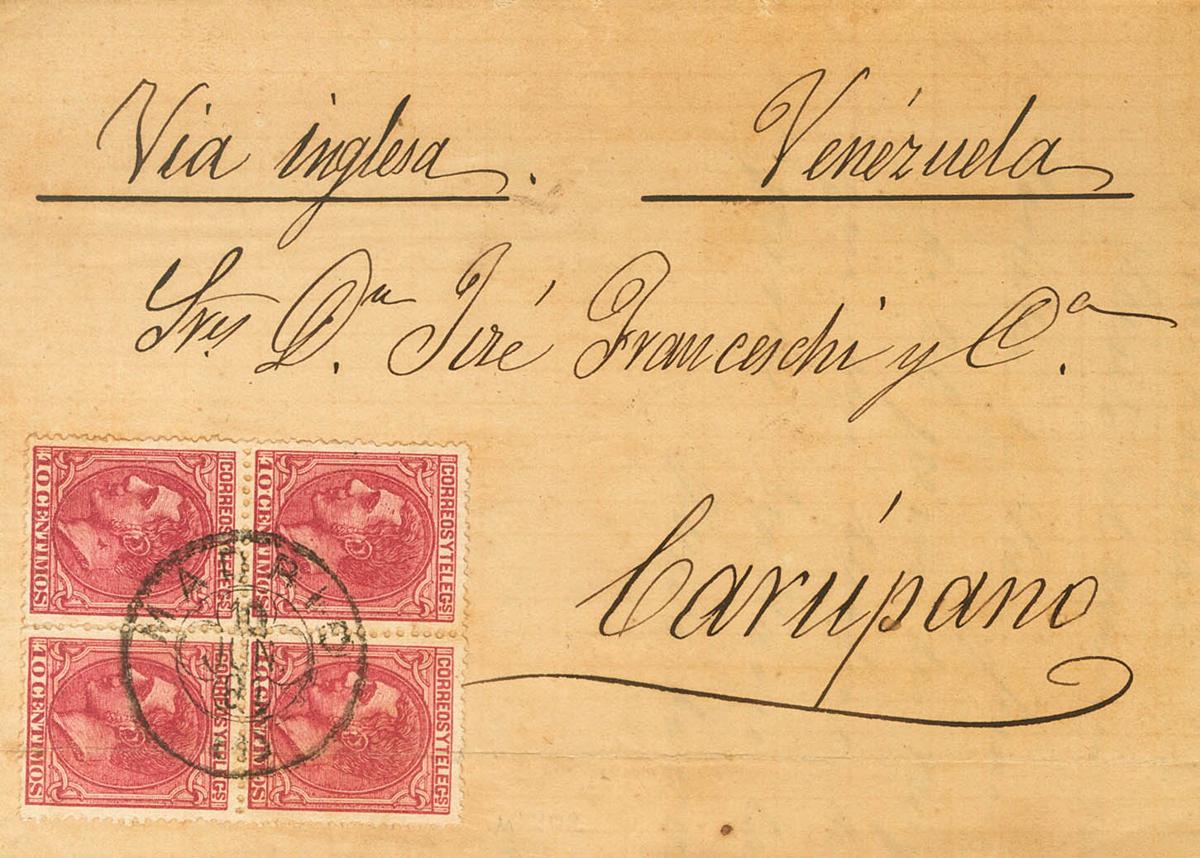 Via inglesa. Venézuela
Sres D.n José Franceschi y C.a
Carúpano
CORREOS Y TELEGS
10 CENTIMOS
CORREOS Y TELEGS
10 CENTIMOS
CORREOS Y TELEGS
10 CENTIMOS
CORREOS Y TELEGS
10 CENTIMOS
MADRID
10
JUN